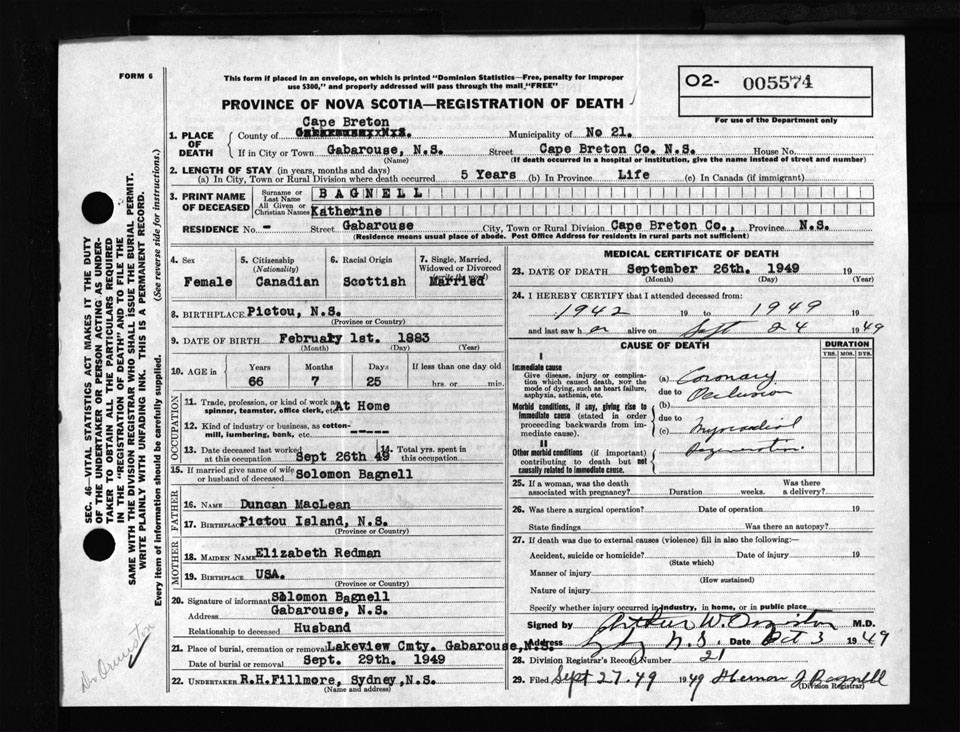 FORM 6
This form if placed in an envelope, on which is printed "Dominion Statistics—Free, penalty for improper
use $300," and properly addressed will pass through the mail "FREE"
O2- 005574
For use of the Department only
PROVINCE OF NOVA SCOTIA—REGISTRATION OF DEATH
1. PLACE OF DEATH
County of Cape Breton
Municipality of No 21.
If in City or Town Gabarouse, N.S. Street Cape Breton Co. N.S. House No.
(Name) (If death occurred in a hospital or institution, give the name instead of street and number)
2. LENGTH OF STAY (in years, months and days)
(a) In City, Town or Rural Division where death occurred 5 Years (b) In Province Life (c) In Canada (if immigrant)
3. PRINT NAME OF DECEASED
Surname or Last Name BAGNELL
All Given or Christian Names Katherine
RESIDENCE No. - Street Gabarouse City, Town or Rural Division Cape Breton Co., Province N.S.
(Residence means usual place of abode. Post Office Address for residents in rural parts not sufficient)
4. Sex Female
5. Citizenship (Nationality) Canadian
6. Racial Origin Scottish
7. Single, Married, Widowed or Divorced Married
8. BIRTHPLACE Pictou, N.S.
(Province or Country)
9. DATE OF BIRTH February 1st. 1883
(Month) (Day) (Year)
10. AGE in Years 66 Months 7 Days 25 If less than one day old hrs. or min.
OCCUPATION
11. Trade, profession, or kind of work as spinner, teamster, office clerk, etc. At Home
12. Kind of industry or business, as cotton-mill, lumbering, bank, etc. -----
13. Date deceased last worked at this occupation Sept 26th 49
14. Total yrs. spent in this occupation
15. If married give name of wife or husband of deceased Solomon Bagnell
FATHER
16. NAME Duncan MacLean
17. BIRTHPLACE Pictou Island, N.S.
(Province or Country)
MOTHER
18. MAIDEN NAME Elizabeth Redman
19. BIRTHPLACE USA.
(Province or Country)
20. Signature of informant Solomon Bagnell
Address Gabarouse, N.S.
Relationship to deceased Husband
21. Place of burial, cremation or removal Lakeview Cmty. Gabarouse, N.S.
Date of burial or removal Sept. 29th. 1949
22. UNDERTAKER R.H.Fillmore, Sydney, N.S.
(Name and address)
MEDICAL CERTIFICATE OF DEATH
23. DATE OF DEATH September 26th. 1949 19
(Month) (Day) (Year)
24. I HEREBY CERTIFY that I attended deceased from:
1942 19 to 1949
and last saw her alive on Sept 24 1949
CAUSE OF DEATH
DURATION
YRS. MOS. DYS.
I
Immediate cause
Give disease, injury or complication which caused death, NOR the mode of dying, such as heart failure, asphyxia, asthenia, etc.
(a) Coronary
due to Occlusion
Morbid conditions, if any, giving rise to immediate cause (stated in order proceeding backwards from immediate cause).
(b)
due to
(c) Myocardial
II
Other morbid conditions (if important) contributing to death but not causally related to immediate cause.
Degeneration
25. If a woman, was the death associated with pregnancy? Duration weeks. Was there a delivery?
26. Was there a surgical operation? Date of operation 19
State findings Was there an autopsy?
27. If death was due to external causes (violence) fill in also the following:—
Accident, suicide or homicide? Date of injury 19
(State which)
Manner of injury
(How sustained)
Nature of injury
Specify whether injury occurred in industry, in home, or in public place
Signed by Arthur W. Ormiston M.D.
Address Sydney N.S. Date Oct 3 1949
28. Division Registrar's Record Number 21
29. Filed Sept 27.49 1949 J Bagnell
(Division Registrar)
SEC. 46—VITAL STATISTICS ACT MAKES IT THE DUTY
OF THE UNDERTAKER OR PERSON ACTING AS UNDER-
TAKER TO OBTAIN ALL THE PARTICULARS REQUIRED
IN THE "REGISTRATION OF DEATH" AND TO FILE THE
SAME WITH THE DIVISION REGISTRAR WHO SHALL ISSUE THE BURIAL PERMIT.
WRITE PLAINLY WITH UNFADING INK. THIS IS A PERMANENT RECORD.
Every item of information should be carefully supplied. (See reverse side for instructions.)
Dr Ormiston